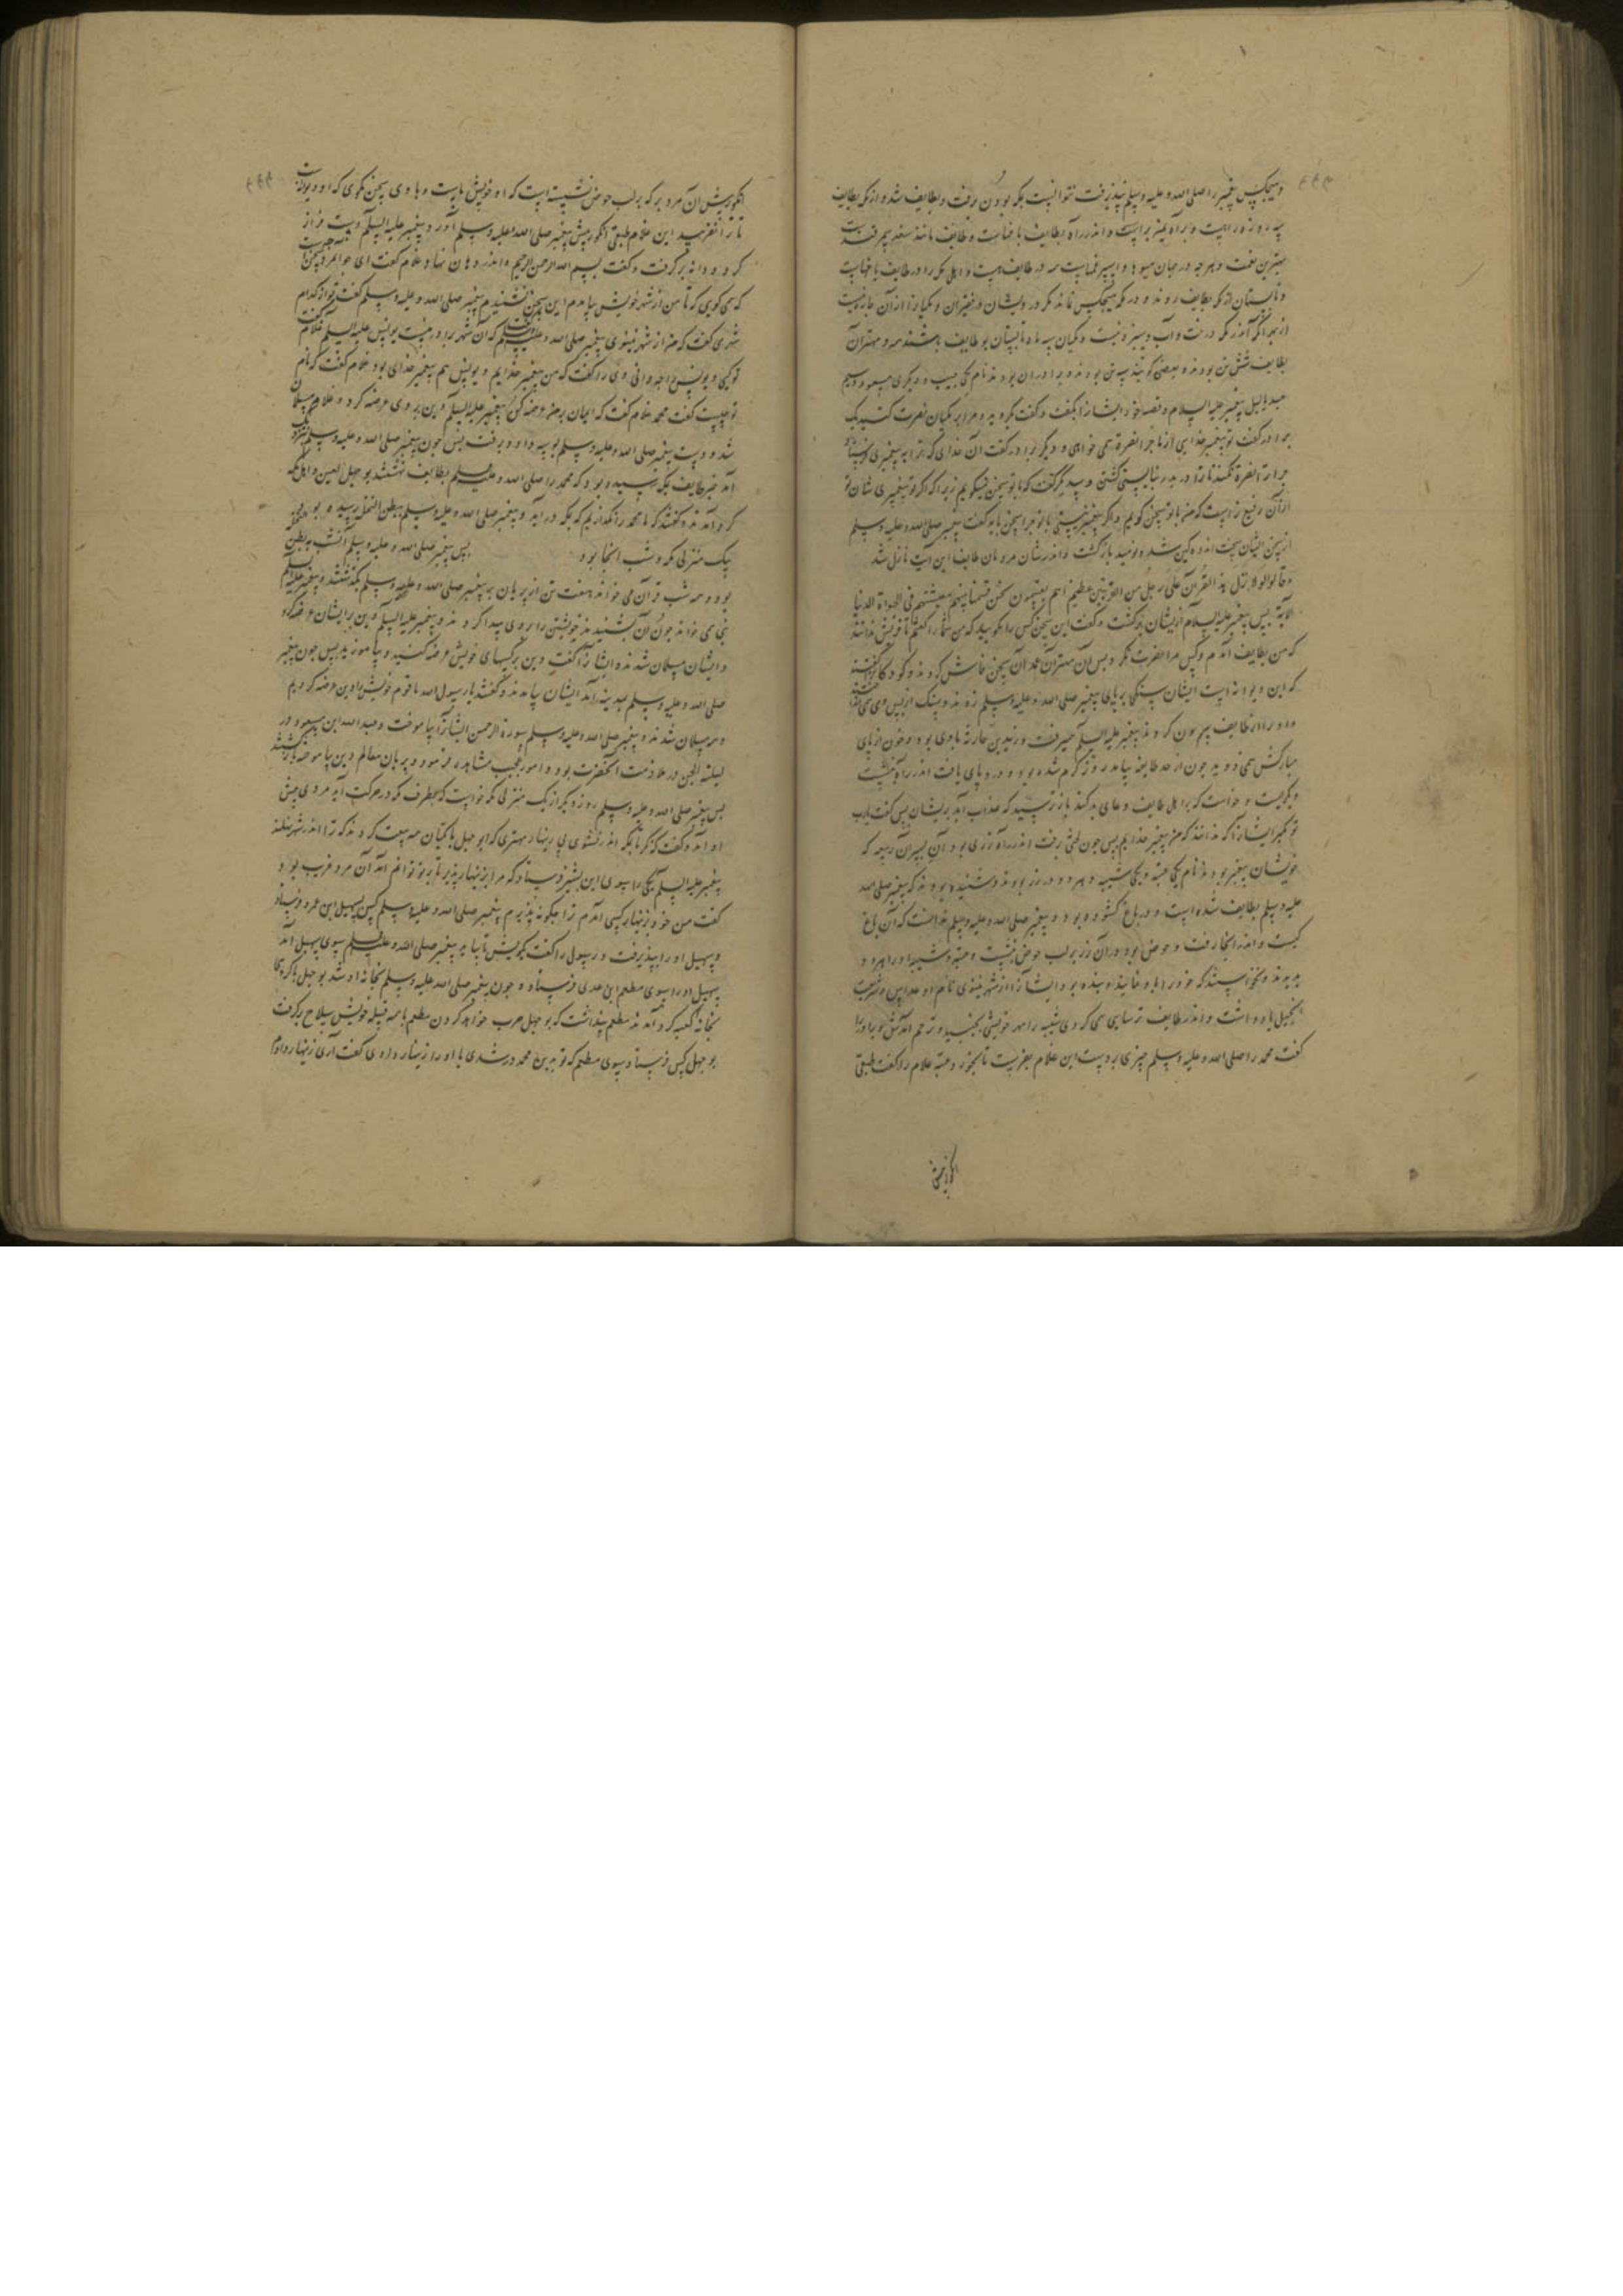 و هیچکس پیغمبر را صلی الله و علیه و سلم نپذیرفت نتوانست بمکه بودن برفت و بطایف شد و از مکه بطایف
سه روزه راهست و براه
بهترین نعمت و هر چه در جهان میوها و
و تابستان از مکه بطایف روند و در مکه هیچکس نماند مکر درویشان و فقیران و مکیانرا از آن چاره نیست
از بهر آنکه اندر مکه درخت و آب و سبزه نیست و مکیان سه ماه تابستان بو طایف باشند و مهتران
بطایف شش تن بودند و بعضی کویند سه تن بودند و برادران بودند نام یکی حبیب و دیگری مسعود و سیم
عبد یالیل پیغمبر علیه السلام و قصه خود ایشانرا بگفت و گفت بگروید و مرا بر مکیان نصرت کنید یک
برادر گفت تو پیغمبر خدایی از ما چرا نصرة همی خواهی و دیگر برادر گفت آن خدای که ترا به پیغمبری فرستاد
چرا ترا نصرة نکند تا ترا در بدر نبایستی گشتن و سدیگر گفت که با تو سخن نیکویم زیرا که اگر تو پیغمبری شان تو
از آن رفیع تر است که من با تو سخن کویم و اگر پیغمبر نیستی با تو چرا سخن باید گفت پیغمبر صلی الله و علیه و سلم
از سخن ایشان سخت اندوهگین شد و نومید بازگشت و اندر شان مردمان طایف این آیت نازل شد
و قالوا لولا نزل هذا القرآن علی رجل من القریتین عظیم اهم یقسمون نحن قسمنا بینهم معیشتهم فی الحیوة الدنیا
الآیة پس پیغمبر علیه السلام از ایشان بازگشت و گفت این سخن کس را مکویید که من شما را گفتم تا قریش ندانند
که من بطایف آمدم و کس مرا نصرت نکرد پس آن مهتران آن سخن فاش کردند و کودکانرا گفتند
که این دیوانه است ایشان سنگی بر پای پیغمبر صلی الله و علیه و سلم زدند و سنگ از پس وی همی انداختند
و او را از طایف بیرون کردند پیغمبر علیه السلام میرفت و زید بن حارثه با وی بود و خون از پای
مبارکش همی دوید چون از حد طایف بیامد روز گرم شده بود و درد پای یافت اندر راه بنشست
و بگریست و خواست که بر اهل طایف دعای بد کند باز ترسید که عذاب آید بریشان پس گفت یارب
تو مگیر ایشانرا که ندانند که من پیغمبر خدایم پس چون لختی برفت اندر راه رزی بود و آن پسران ربیعه که
خویشان پیغمبر بودند نام یکی عتبه و یکی شیبه و هر دو در رز بودند و شنیده بودند که پیغمبر صلی الله
علیه و سلم بطایف شده است و در باغ کشوده بود و پیغمبر صلی الله و علیه و سلم ندانست که آن باغ
کیست و اندر آنجا رفت و حوض بود در آن رز بر لب حوض بنشست و عتبه و شیبه او را هر دو
بدیدند و نخواستند که خود را با و نمایند و بنده بود ایشانرا از شهر نینوی نام او عداس و شریعت
انجیل یاد داشت و اندر طایف ترسایی می کردی شیبه را مهر خویشی بجنبید و ترحم آمدش و برادر را
گفت محمد را صلی الله و علیه و سلم چیزی بدست این غلام بفریست تا بخورد عتبه غلام را گفت طبقی
انکور پیش آن مرد بر که بر لب حوض نشسته است که او خویش ماست و با وی سخن نکوی که او دیوانه است
تا ترا نفریبد این غلام طبقی انکور پیش پیغمبر صلی الله و علیه و سلم آورد و پیغمبر علیه السلام دست فراز
کرد و دانه بر گرفت و گفت بسم الله الرحمن الرحیم و اندر دهان نهاد غلام گفت ای جوانمرد این چه سخن است
که همی کویی که تا من از شهر خویش بیامدم این سخن نشنیدم پیغمبر صلی الله و علیه و سلم گفت تو از کدام
شهری گفت که من از شهر نینوی پیغمبر صلی الله و علیه و سلم گفت که آن شهر برادرمست یونس علیه السلام غلام گفت
تو کیی و یونس را چه دانی وی را گفت که من پیغمبر خدایم و یونس هم پیغمبر خدای بود غلام گفت که نام
تو چیست گفت محمد غلام گفت که ایمان بر من عرضه کن پیغمبر علیه السلام دین بر وی عرضه کرد و غلام مسلمان
شد و دست پیغمبر صلی الله و علیه و سلم بوسه داد و برفت پس چون پیغمبر صلی الله و علیه و سلم نزدیک
آمد خبر طایف بمکه رسیده بود که محمد را صلی الله و علیه و سلم بطایف نهشتند بوجهل لعین و اهل مکه
گرد آمدند و گفتند که ما محمد را نگذاریم که بمکه در آید و پیغمبر صلی الله و علیه و سلم ببطن النخل رسیده بود
یک منزلی مکه و شب آنجا بود پس پیغمبر صلی الله و علیه و سلم آن شب ببطن نخل
بود و همه شب قرآن می خواند هفت تن از پریان به پیغمبر صلی الله و علیه و سلم بگذشتند و پیغمبر علیه السلام
نبی همی خواند چون آن بشنیدند خویشتن را بر وی پیدا کردند و پیغمبر علیه السلام دین بر ایشان عرضه کرد
و ایشان مسلمان شدند و ایشانرا گفت دین بر کسهای خویش عرضه کنید و بیاموزید پس چون پیغمبر
صلی الله و علیه و سلم بمدینه آمد ایشان بیامدند و گفتند یا رسول الله ما قوم خویش را دین عرضه کردیم
و همه مسلمان شدند و پیغمبر صلی الله و علیه و سلم سورة الرحمن ایشانرا بیاموخت و عبد الله ابن مسعود در
لیلة الجن در ملازمت آنحضرت بود و امور عجیب مشاهده فرمود و پریان معالم دین بیاموخته بازگشتند
پس پیغمبر صلی الله و علیه و سلم روز دیگر از یک منزلی مکه خواست که بطرف مکه در حرکت آید مردی پیش
او آمد و گفت که بمکه اندر نشوی بی زینهار مهتری که ابوجهل با مکیان همه بیعت کردند که ترا اندر شهر نهلند
پیغمبر علیه السلام یکی را سوی این بشیر فرستاد که مرا بزینهار پذیر تا بر تو توانم آمد آن مرد غریب بود و
گفت من خود بزینهار کسی آمدم ترا چگونه پذیرم پیغمبر صلی الله و علیه و سلم کس بسهیل ابن عمرو فرستاد
و سهیل او را بپذیرفت و رسول را گفت کویش تا بیاید پیغمبر صلی الله و علیه و سلم سوی سهیل آمد
سهیل او را سوی مطعم ابن عدی فرستاد و چون پیغمبر صلی الله علیه و سلم بخانه او شد بوجهل با گروهی
بخانه کعبه گرد آمدند مطعم پنداشت که بوجهل حرب خواهد کردن مطعم با همه قبیله خویش سلاح برگرفت
بوجهل کس فرستاد سوی مطعم که تو بدین محمد در شدی یا او را زینهار دادی گفت آری زینهار دادم
انکور پیش